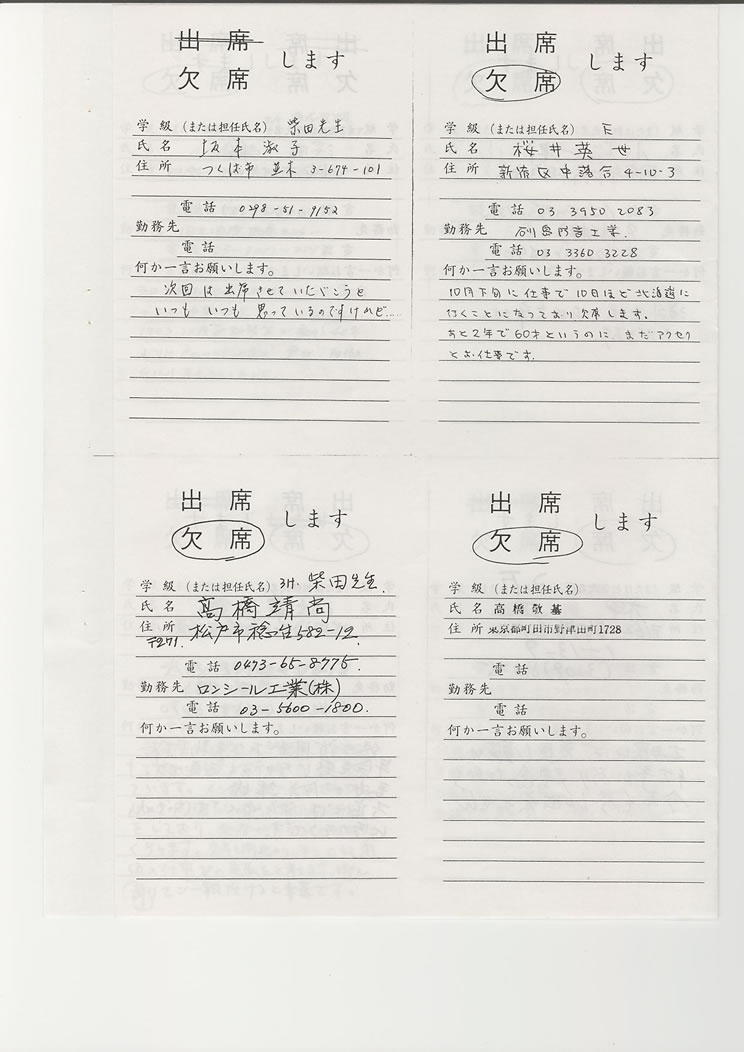 出席
欠席
します
学級（または担任氏名） 柴田先生
氏名 坂本淑子
住所 つくば市 並木 3-674-101
電話 0298-51-9152
勤務先
電話
何か一言お願いします。
次回は出席させていただこうと
いつも いつも 思っているのですけれど.....
出席
欠席
します
学級（または担任氏名） E
氏名 桜井英世
住所 新宿区中落合 4-10-3
電話 03 3950 2083
勤務先 防音工業.
電話 03 3360 3228
何か一言お願いします。
10月下旬に仕事で10日ほど北海道に
行くことになっており欠席します。
あと2年で60才というのに、まだアクセク
とお仕事です.
出席
欠席
します
学級（または担任氏名） 3H. 柴田先生.
氏名 髙橋靖尚
住所 松戸市稔台582-12.
〒271.
電話 0473-65-8775.
勤務先 ロンシール工業(株)
電話 03-5600-1800.
何か一言お願いします。
出席
欠席
します
学級（または担任氏名）
氏名 高橋敬
住所 東京都町田市野津田町1728
電話
勤務先
電話
何か一言お願いします。